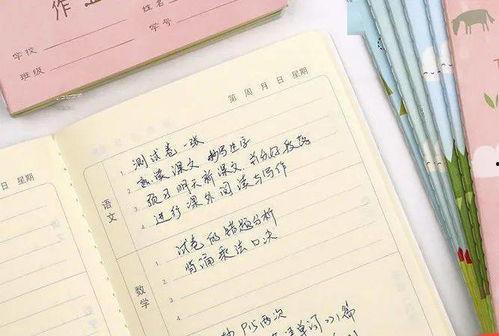 作业
姓名
学校
学号
班级
第 周 月 日 星期
月 日 星期
语文
1. 测试卷一张
2. 熟读课文 抄写生字
3. 预习明天新课文
4. 进行课外阅读与写作
数学
1. 试卷的错题分析
2. 背诵乘法口诀
3.
4.
P15两次